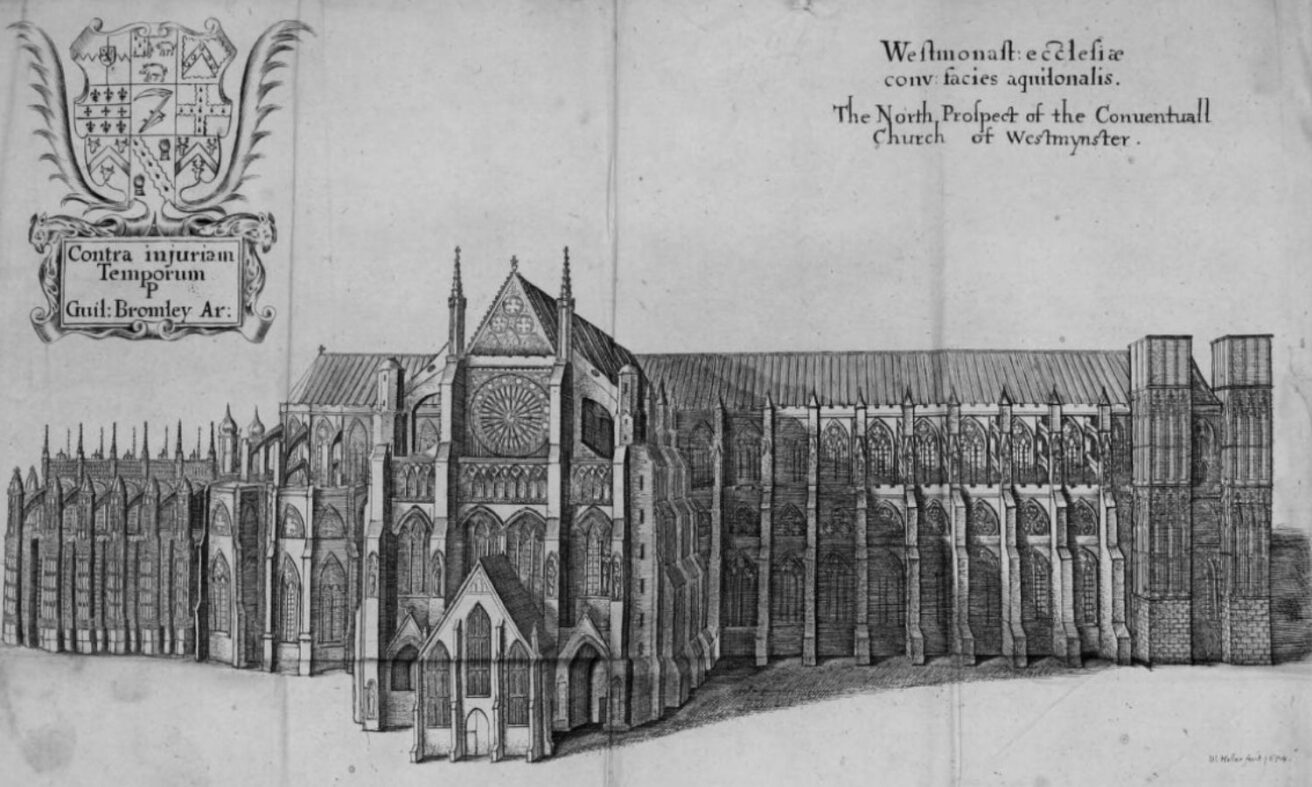 Contra injuriam
Temporum
P
Guil: Bromley Ar:
Westmonast: ecclesiæ
conv: facies aquilonalis.
The North Prospect of the Conventuall
Church of Westmynster.
W. Hollar fecit 1654.